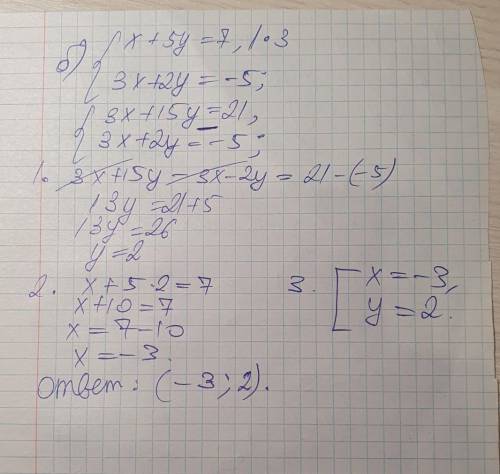 б) { x + 5y = 7, | · 3
3x + 2y = -5;
{ 3x + 15y = 21,
3x + 2y = -5;
1. 3x + 15y - 3x - 2y = 21 - (-5)
13y = 21 + 5
13y = 26
y = 2
2. x + 5 · 2 = 7
x + 10 = 7
x = 7 - 10
x = -3.
3. [ x = -3,
y = 2.
Ответ: (-3; 2).